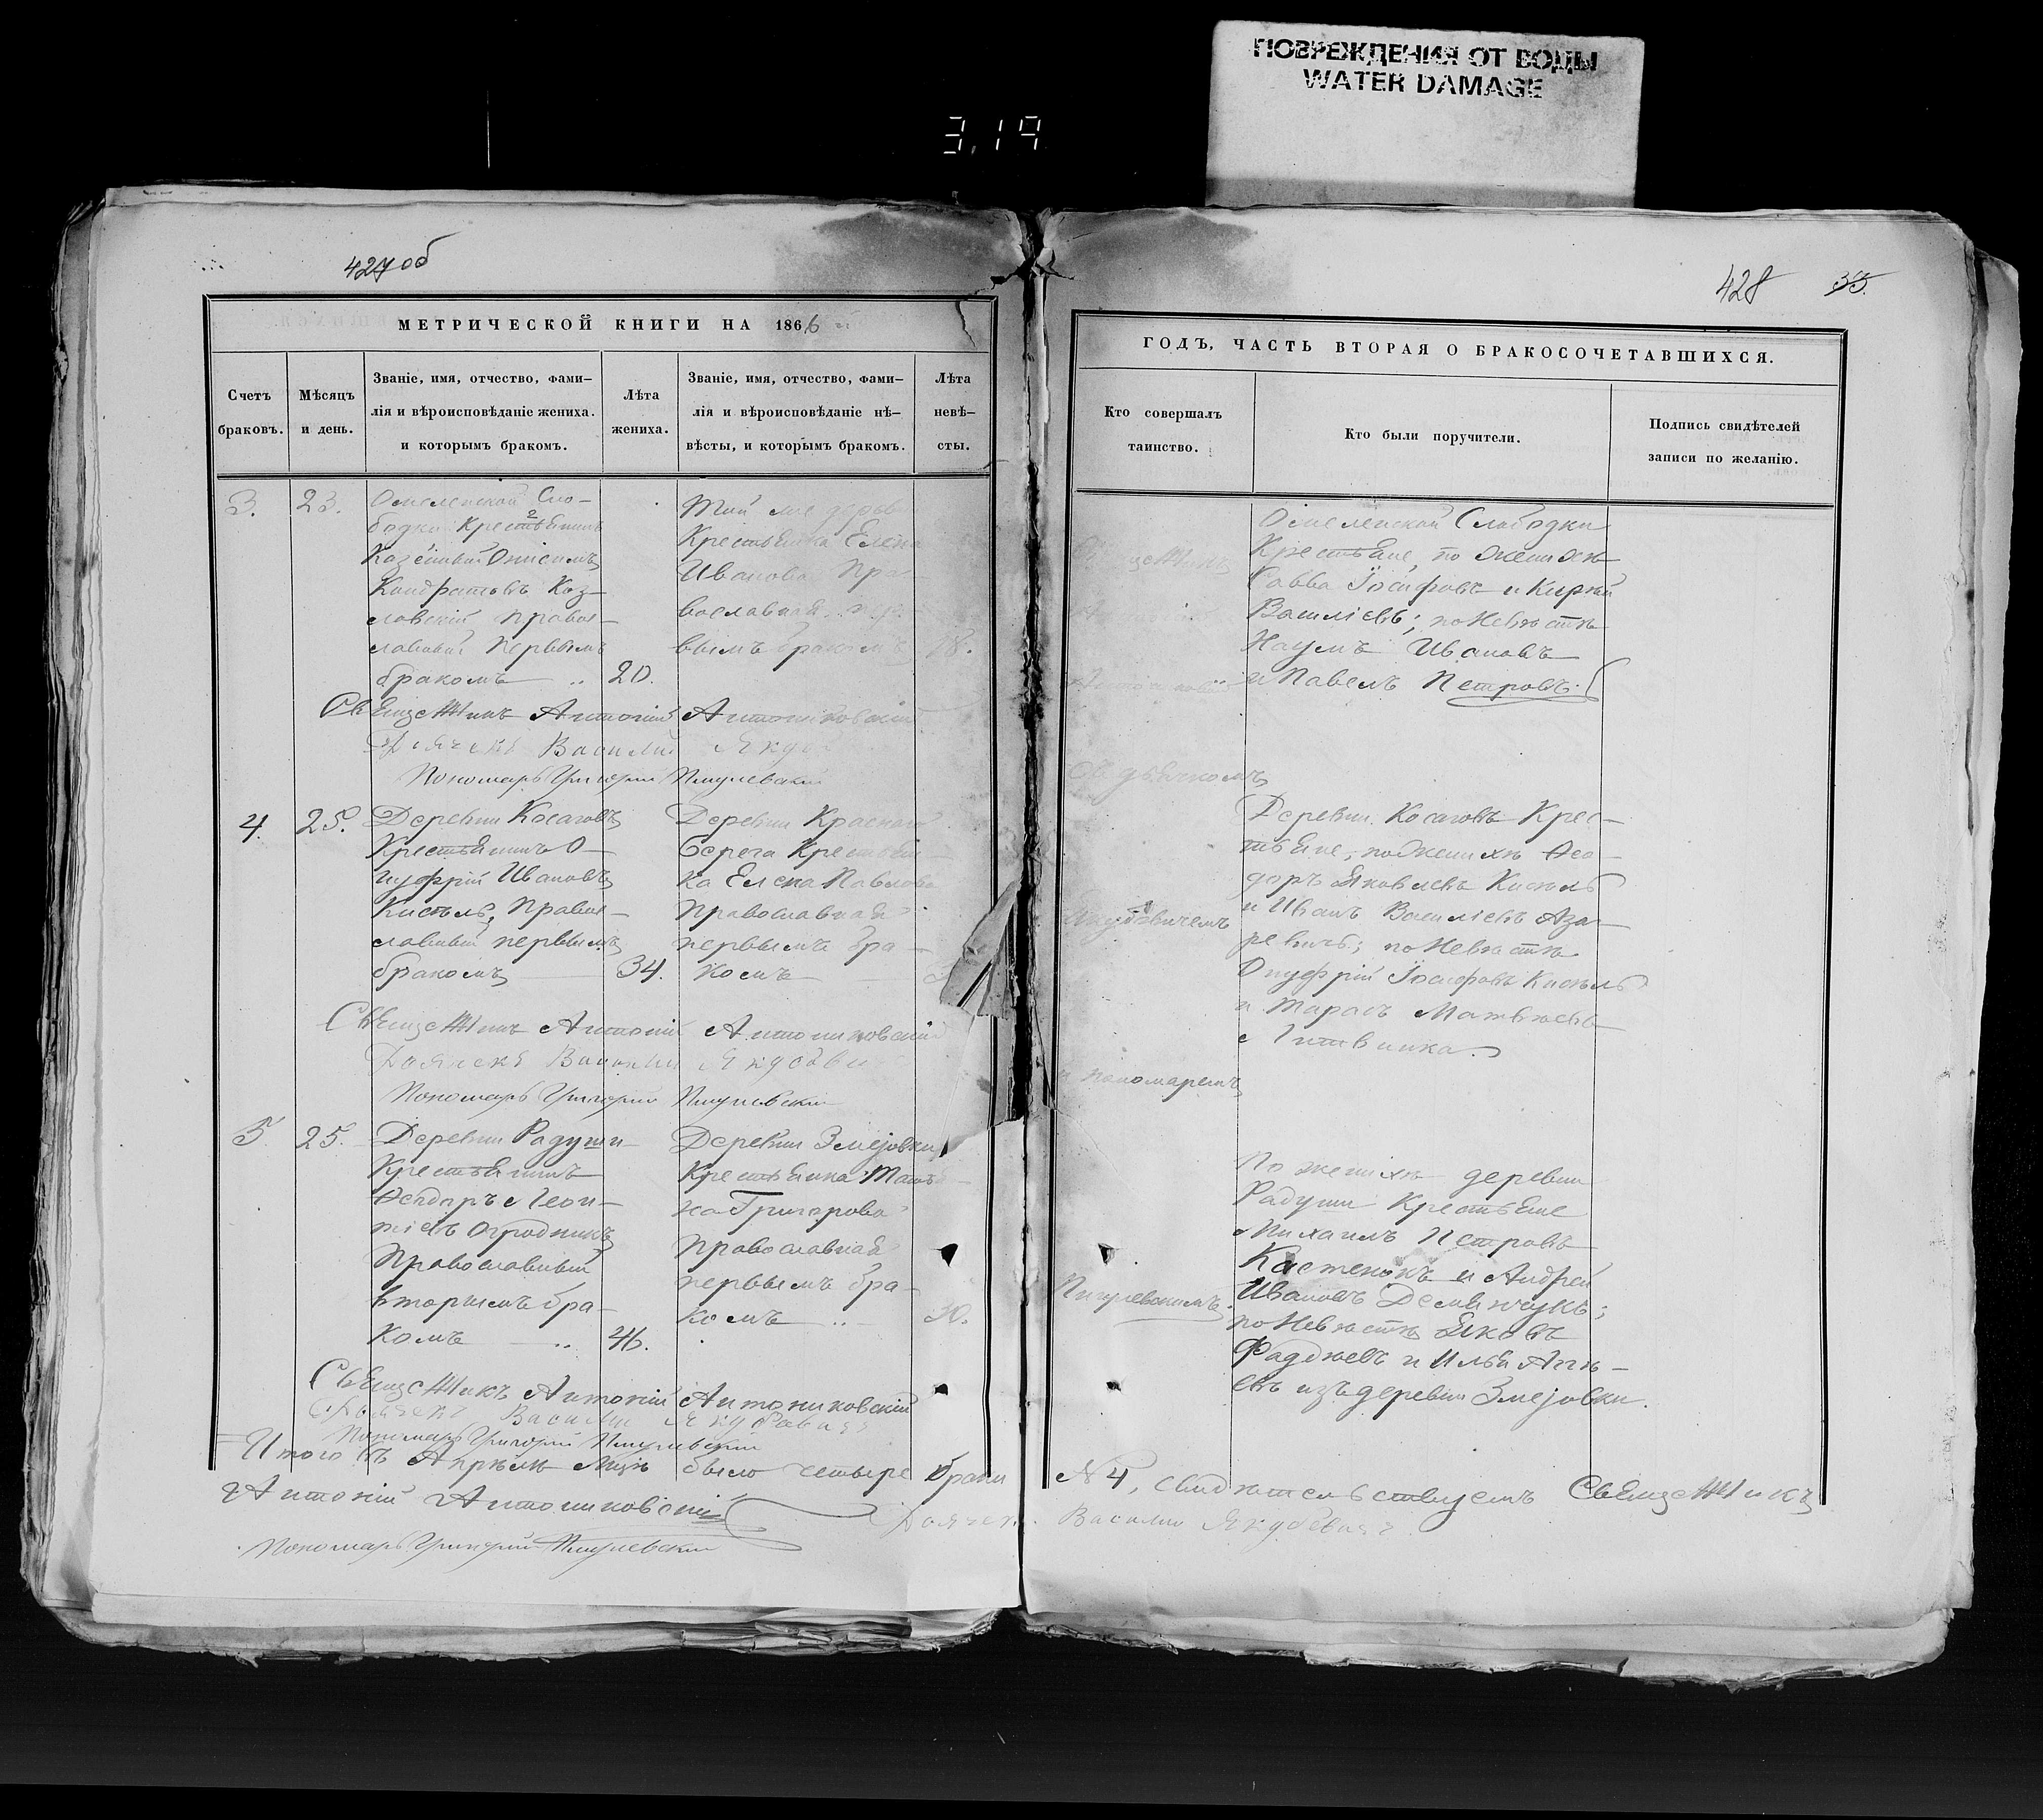 ПОВРЕЖДЕНИЯ ОТ ВОДЫ
WATER DAMAGE
3,19
427 об
МЕТРИЧЕСКОЙ КНИГИ НА 1866 й
Счетъ браковъ.
Мѣсяцъ и день.
Званіе, имя, отчество, фами-
лія и вѣроисповѣданіе жениха.
и которымъ бракомъ.
Лѣта жениха.
Званіе, имя, отчество, фами-
лія и вѣроисповѣданіе нѣ-
вѣсты, и которымъ бракомъ.
Лѣта невѣ-
сты.
3.
23.
Омеленской Сло-
бодки Крестьянинъ
Казённый Онисимъ
Кондратовъ Коз-
ловскій право-
славный первымъ
бракомъ
20.
Той же
Крестьянка Елена
Иванова Пра-
вославная пер-
вымъ бракомъ
18.
Священникъ Антоній Антониковскій
Дьячекъ Василій
Пономарь Григорій Пигулевскій
4.
25.
Деревни Косаговъ
Крестьянинъ О-
нуфрій Ивановъ
Кисѣль, Право-
славный первымъ
бракомъ
34.
Деревни Красного
берега Крестьян-
ка Елена Павлова
Православная
первымъ бра-
комъ
Священникъ Антоній Антониковскій
Дьячекъ Василій
Пономарь Григорій Пигулевскій
5
25.
Деревни Радуши
Крестьянинъ
Ѳеодоръ Леон-
тіевъ Огродникъ
Православный
вторымъ бра-
комъ
46.
Деревни Змеіовки
Крестьянка Татья-
на Григорова
Православная
первымъ бра-
комъ
30.
Священникъ Антоній Антониковскій
Дьячекъ Василій Якубовичъ
Пономарь Григорій Пигулевскій
Итого въ Апрѣлѣ Мцѣ было четыре браки
Антоній Антониковскій
Пономарь Григорій Пигулевскій
428 33.
ГОДЪ, ЧАСТЬ ВТОРАЯ О БРАКОСОЧЕТАВШИХСЯ.
Кто совершалъ таинство.
Кто были поручители.
Подпись свидѣтелей
записи по желанію.
Омеленской Слободки
Крестьяне, по женихѣ
Савва Іосифовъ и Кирѣй
Василіевъ; по Невѣстѣ
Наумъ Ивановъ
и Павелъ Петровъ.
Съ дьячкомъ
Деревни Косаговъ Крес-
тьяне, по женихѣ Ѳео-
доръ Яковлевъ Кисѣль
и Иванъ Василіевъ Аза-
ревичъ; по Невѣстѣ
Онуфрій Іосифовъ Кисѣль
и Тарасъ Матвѣевъ
Литвинка.
Якубовичемъ
и пономаремъ
По женихѣ деревни
Радуши Крестьяне
Михаилъ Петровъ
Кастенокъ и Андрей
Ивановъ Демянчукъ;
по Невѣстѣ Яковъ
Фаддѣевъ и Илья Аги-
евъ изъ деревни Змеіовки.
Пигулевскимъ.
№ 4, свидѣтельствуемъ Священникъ
Дьячекъ Василій Якубовичъ